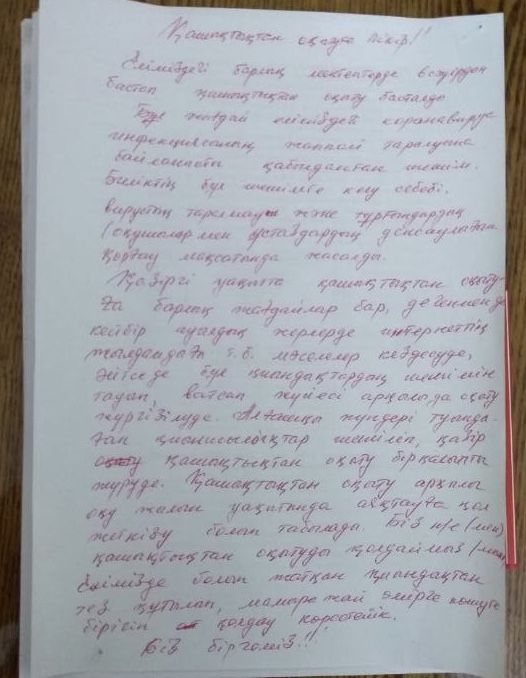 Қашықтықтан оқытуға пікір!!
Еліміздегі барлық мектептерде
бастап қашықтықтан оқыту басталды
Бұл жағдай еліміздегі коронавирус
инфекциясының жаппай таралуына
байланысты қабылданған шешім.
Биліктің бұл шешімге келу себебі.
вирустың таралмауы және тұрғындардың
(оқушылар мен ұстаздардың денсаулығын
қорғау мақсатында жасалды.
Қазіргі уақытта қашықтықтан оқыту-
ға барлық жағдайлар бар, дегенменде
кейбір ауылдық жерлерде интернеттің
жылдамдығы т.б. мәселелер кездесуде,
әйтседе бұл қиындықтардың шешімін
тауып, ватсап жүйесі арқылы да оқыту
жүргізілуде. Алғашқы күндері туында-
ған қиыншылықтар шешіліп, қазір
қашықтықтан оқыту бірқалыпты
жүруде. Қашықтықтан оқыту арқылы
оқу жылын уақытында аяқтауға қол
жеткізу болып табылады. Біз н/е (мен)
қашықтықтан оқытуды қолдаймыз (мын)
Елімізде болып жатқан қиындықтан
тез құтылып, мамыражай өмірге көшуге
бірігіп қолдау көрсетейік.
Біз біргеміз!!!